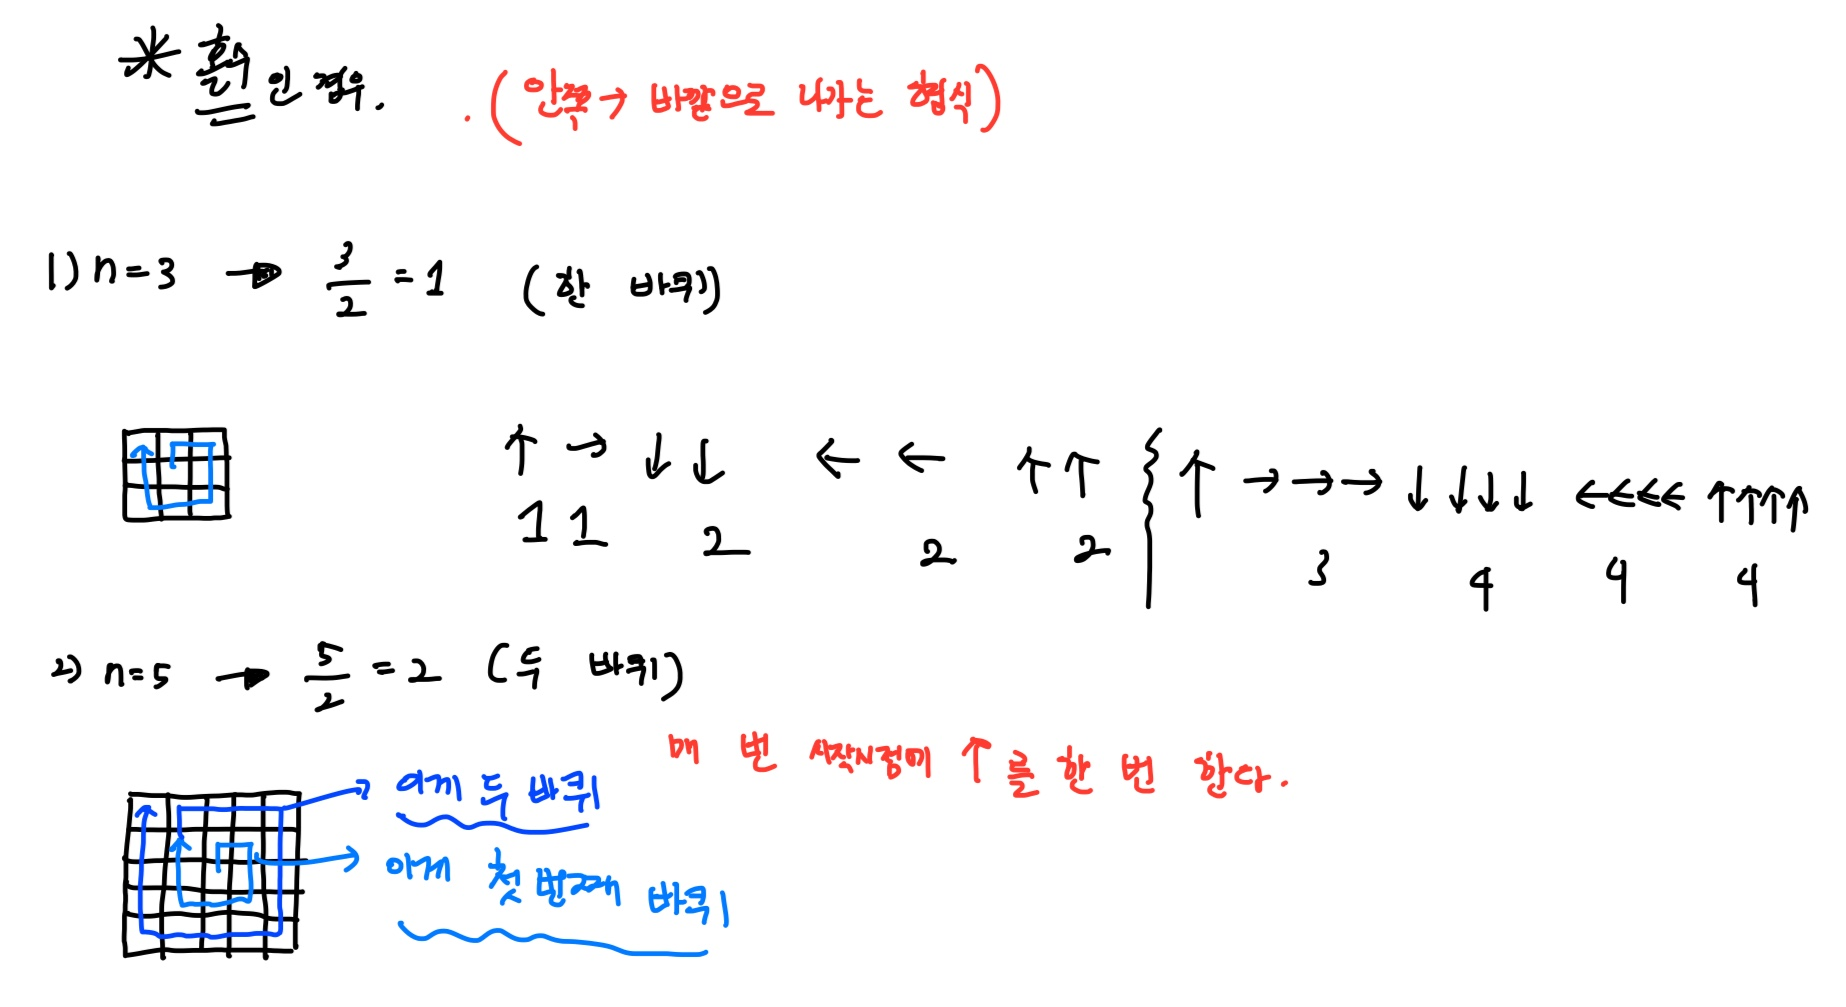 * 홀수인 경우. (안쪽→ 바깥으로 나가는 형식)
1) n=3 → 3/2 = 1 (한 바퀴)
↑ → ↓ ↓ ← ← ↑ ↑ ↑ → → → ↓ ↓ ↓ ↓ ← ← ← ← ↑ ↑ ↑ ↑
1 1 2 2 2 3 4 4 4
2) n=5 → 5/2 = 2 (두 바퀴)
매 번 시작시점에 ↑를 한 번 한다.
이게 두 바퀴
이게 첫 번째 바퀴